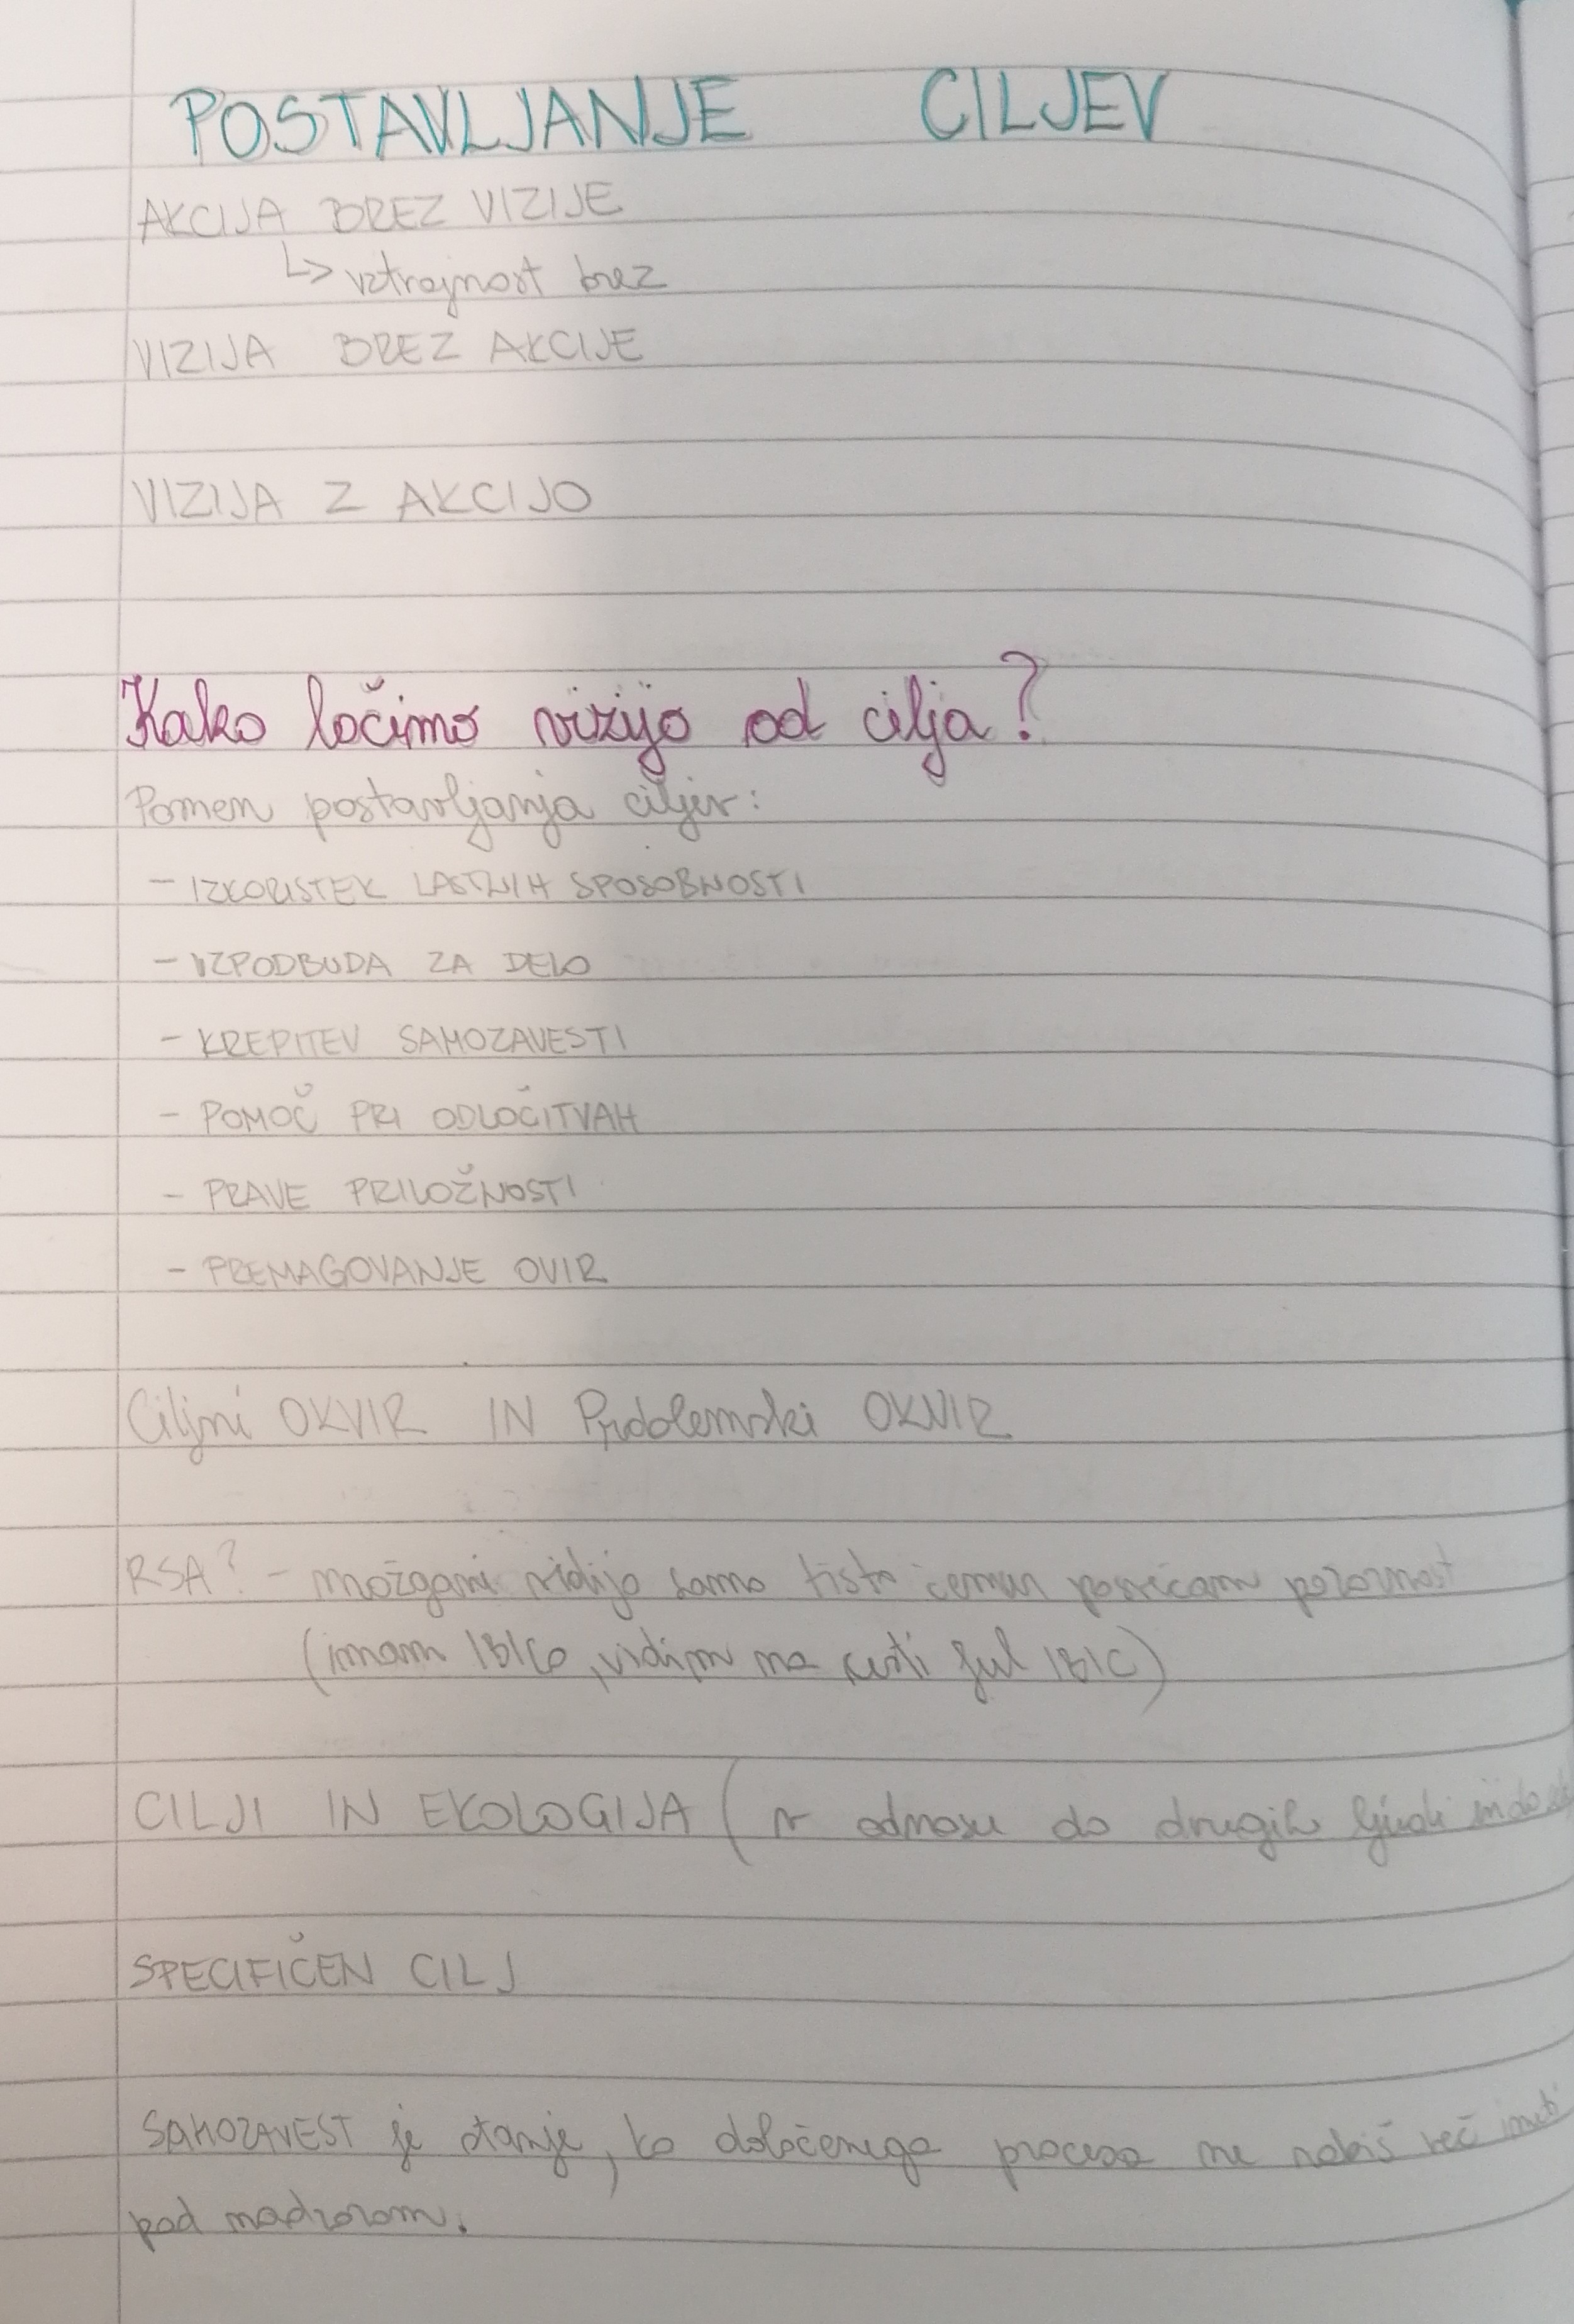 POSTAVLJANJE CILJEV
AKCIJA BREZ VIZIJE
↳ vztrajnost brez
VIZIJA BREZ AKCIJE
VIZIJA Z AKCIJO
Kako ločimo vizijo od cilja?
Pomen postavljanja ciljev:
- IZKORISTEK LASTNIH SPOSOBNOSTI
- VZPODBUDA ZA DELO
- KREPITEV SAMOZAVESTI
- POMOČ PRI ODLOČITVAH
- PRAVE PRILOŽNOSTI
- PREMAGOVANJE OVIR
Ciljni OKVIR IN Problemski OKVIR
RSA? - možgani vidijo samo tisto čemur posvečam pozornost
(imam IBICo, vidim na cesti ful IBIC)
CILJI IN EKOLOGIJA (v odnosu do drugih ljudi in do
SPECIFIČEN CILJ
SAMOZAVEST je stanje, ko določenega procesa ne rabiš več imeti
pod nadzorom.